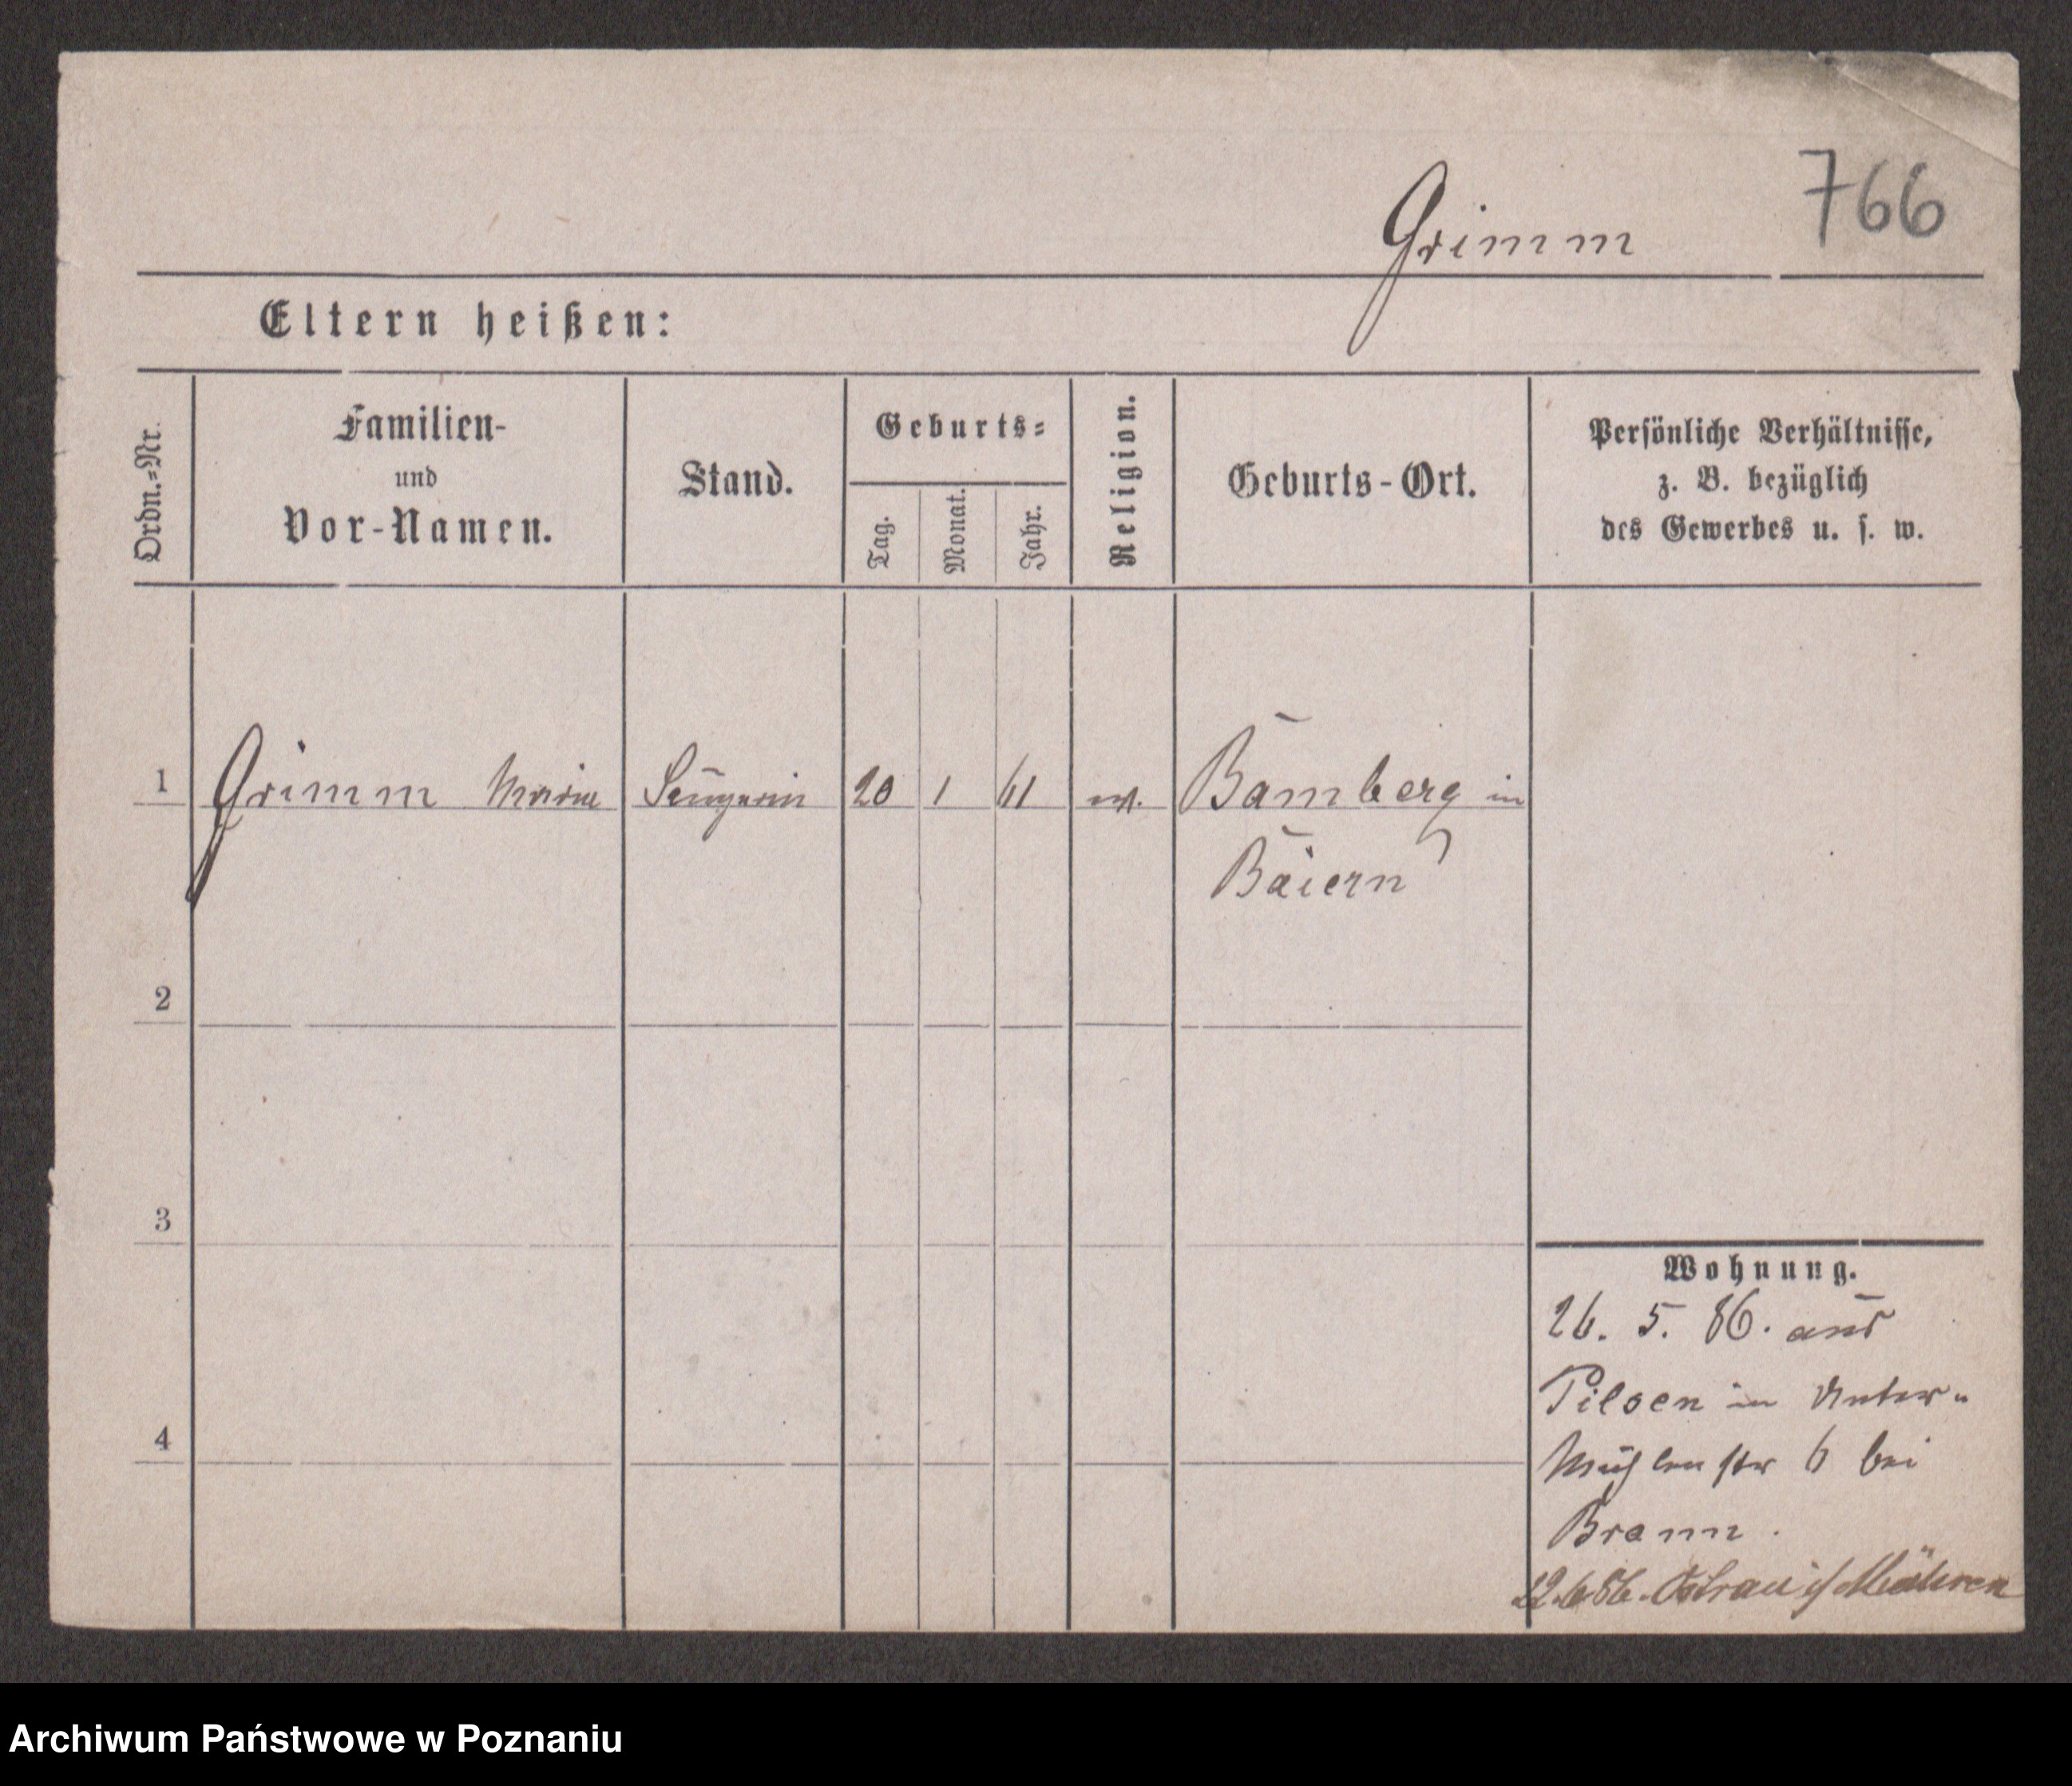 766
Grimm
Eltern heißen:
Ordn.=Nr.
Familien-
und
Vor-Namen.
Stand.
Geburts=
Tag.
Monat.
Jahr.
Religion.
Geburts-Ort.
Persönliche Verhältnisse,
z. B. bezüglich
des Gewerbes u. s. w.
1 Grimm Marie Sängerin 20 1 61 Bamberg in
Baiern
2
3
4
Wohnung.
26. 5. 86. aus
Pilsen in Unter-
Mühlenstr 6 bei
22.6.86. Ostrau i/ Mähren
Archiwum Państwowe w Poznaniu